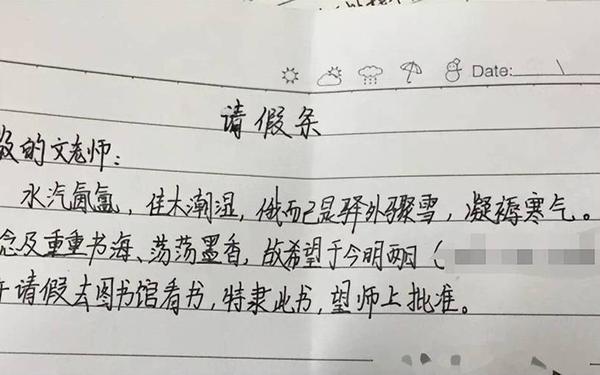 Date:
请假条
的文老师：
水汽氤氲，佳木潮湿，俄而已是驿外骤雪，凝褥寒气。
念及重重书海、荡荡墨香，故希望于今明两日（
请假去图书馆看书，特隶此书，望师上批准。